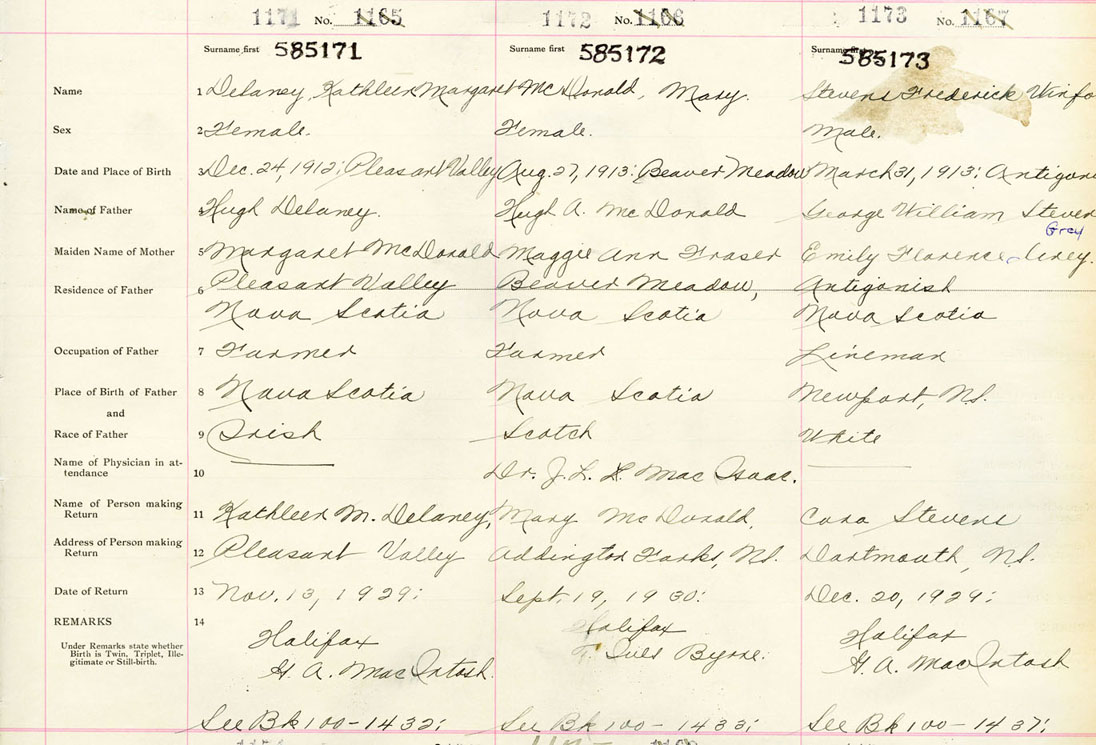 1171 No. 1165 1172 No. 1166 1173 No. 1167
Surname first 585171 Surname first 585172 Surname first 585173
Name 1 Delaney, Kathleen Margaret McDonald, Mary. Stevens Frederick
Sex 2 Female. Female. Male.
Date and Place of Birth 3 Dec. 24, 1912; Pleasant Valley Aug. 27, 1913: Beaver Meadow March 31, 1913:
Name of Father Hugh Delaney. Hugh A. McDonald George William
Grey
Maiden Name of Mother 5 Margaret McDonald Maggie Ann Fraser Emily Florence
Residence of Father 6 Pleasant Valley Beaver Meadow, Antigonish
Nova Scotia Nova Scotia Nova Scotia
Occupation of Father 7 Farmer Farmer Lineman
Place of Birth of Father 8 Nova Scotia Nova Scotia Newport, N.S.
and
Race of Father 9 Irish Scotch White
Name of Physician in at-
tendance 10 Dr. J. L. Mac Isaac.
Name of Person making
Return 11 Kathleen M. Delaney, Mary McDonald, Cora Stevens
Address of Person making
Return 12 Pleasant Valley Addington Forks, N.S. Dartmouth, N.S.
Date of Return 13 Nov. 13, 1929: Sept. 19, 1930: Dec. 20, 1929:
REMARKS 14
Under Remarks state whether
Birth is Twin, Triplet, Ille-
gitimate or Still-birth.
Halifax Halifax Halifax
H. A. MacIntosh. Byrne. H. A. MacIntosh
See Bk 100-1432; See Bk 100-1433; See Bk 100-1437;